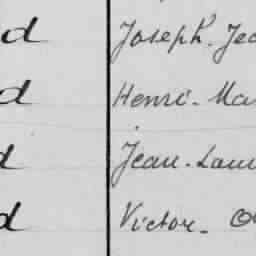 d Joseph. Jea
d Henri. Ma
d Jean. Lau
d Victor.